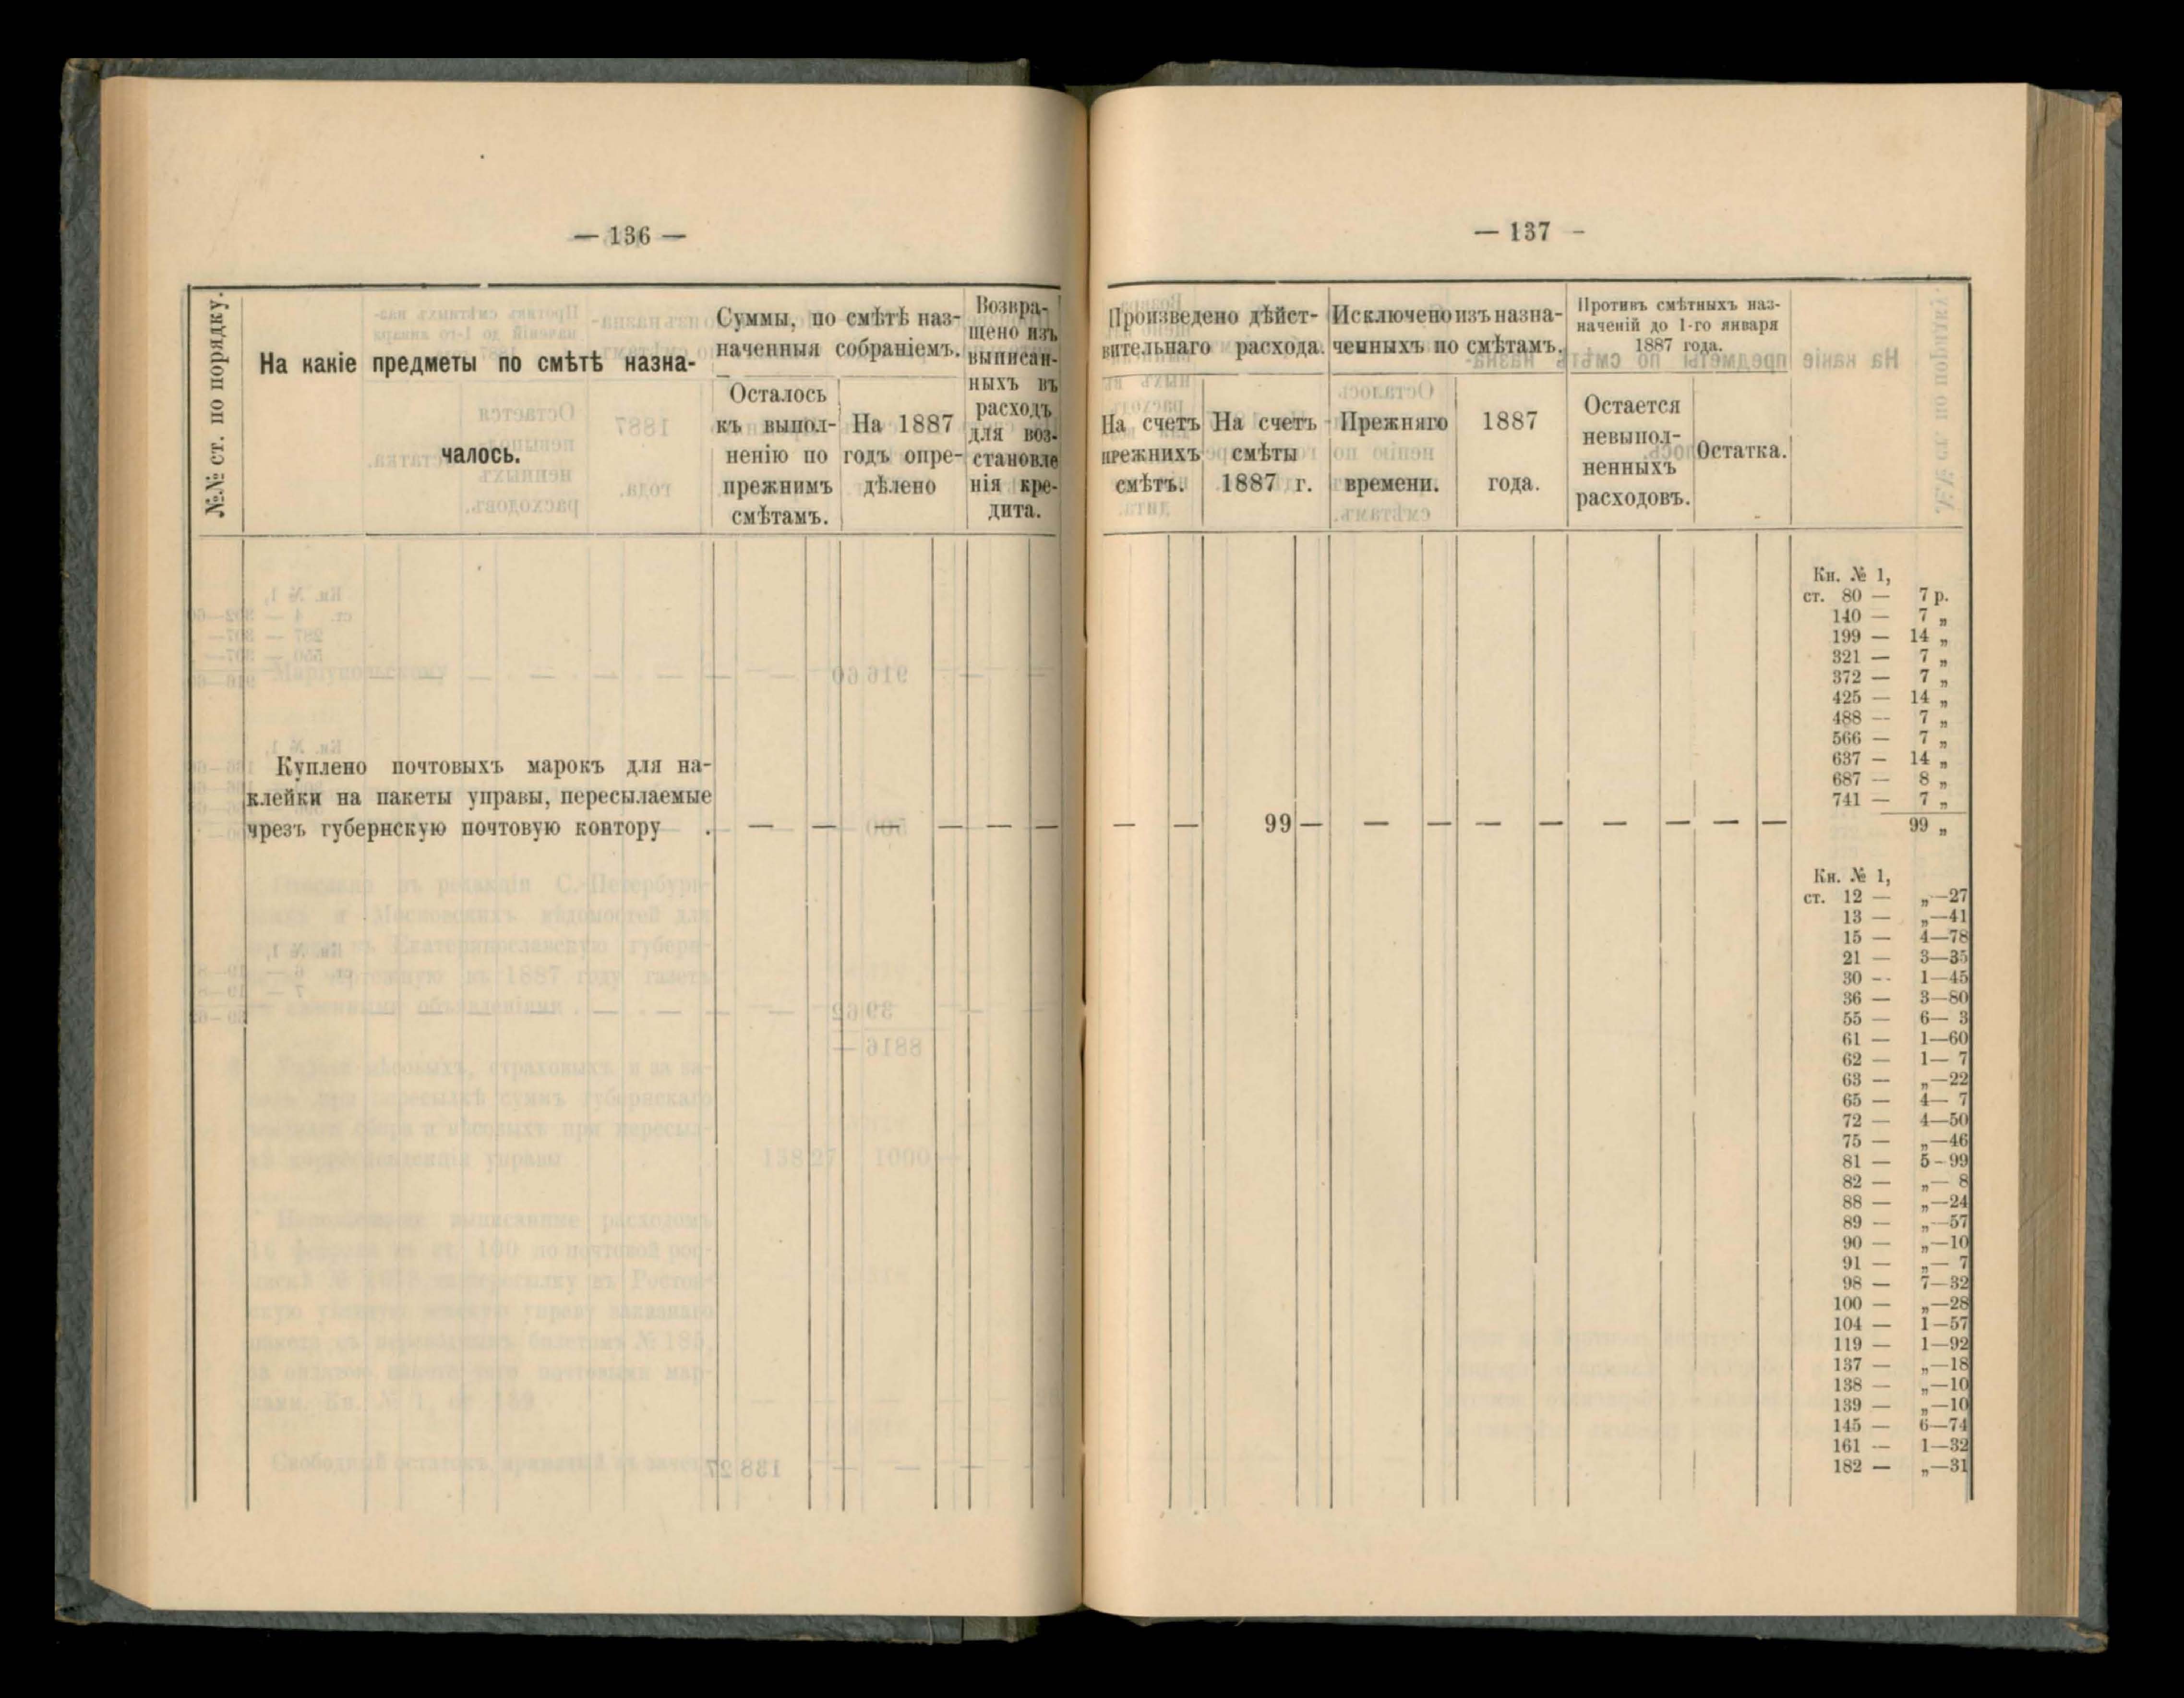 — 136 —
№№ ст. по порядку.
На какіе предметы по смѣтѣ назна-
чалось.
Суммы, по смѣтѣ наз-
наченныя собраніемъ.
Осталось
къ выпол-
ненію по
прежнимъ
смѣтамъ.
На 1887
годъ опре-
дѣлено
Возвра-
щено изъ
выписан-
ныхъ въ
расходъ
для воз-
становле
нія кре-
дита.
Куплено почтовыхъ марокъ для на-
клейки на пакеты управы, пересылаемые
чрезъ губернскую почтовую контору . — — — — — —
— 137 -
Произведено дѣйст-
вительнаго расхода.
На счетъ
прежнихъ
смѣтъ.
На счетъ
смѣты
1887 г.
Исключено изъ назна-
ченныхъ по смѣтамъ.
Прежняго
времени.
1887
года.
Противъ смѣтныхъ наз-
наченій до 1-го января
1887 года.
Остается
невыпол-
ненныхъ
расходовъ.
Остатка.
Кн. № 1,
ст. 80 — 7 р.
140 — 7 „
199 — 14 „
321 — 7 „
372 — 7 „
425 — 14 „
488 — 7 „
566 — 7 „
637 — 14 „
687 — 8 „
741 — 7 „
— — 99 — — — — — — — — — 99 „
Кн. № 1,
ст. 12 — „—27
13 — „—41
15 — 4—78
21 — 3—35
30 — 1—45
36 — 3—80
55 — 6— 3
61 — 1—60
62 — 1— 7
63 — „—22
65 — 4— 7
72 — 4—50
75 — „—46
81 — 5-99
82 — „— 8
88 — „—24
89 — „—57
90 — „—10
91 — „— 7
98 — 7—32
100 — „—28
104 — 1—57
119 — 1—92
137 — „—18
138 — „—10
139 — „—10
145 — 6—74
161 — 1—32
182 — „—31